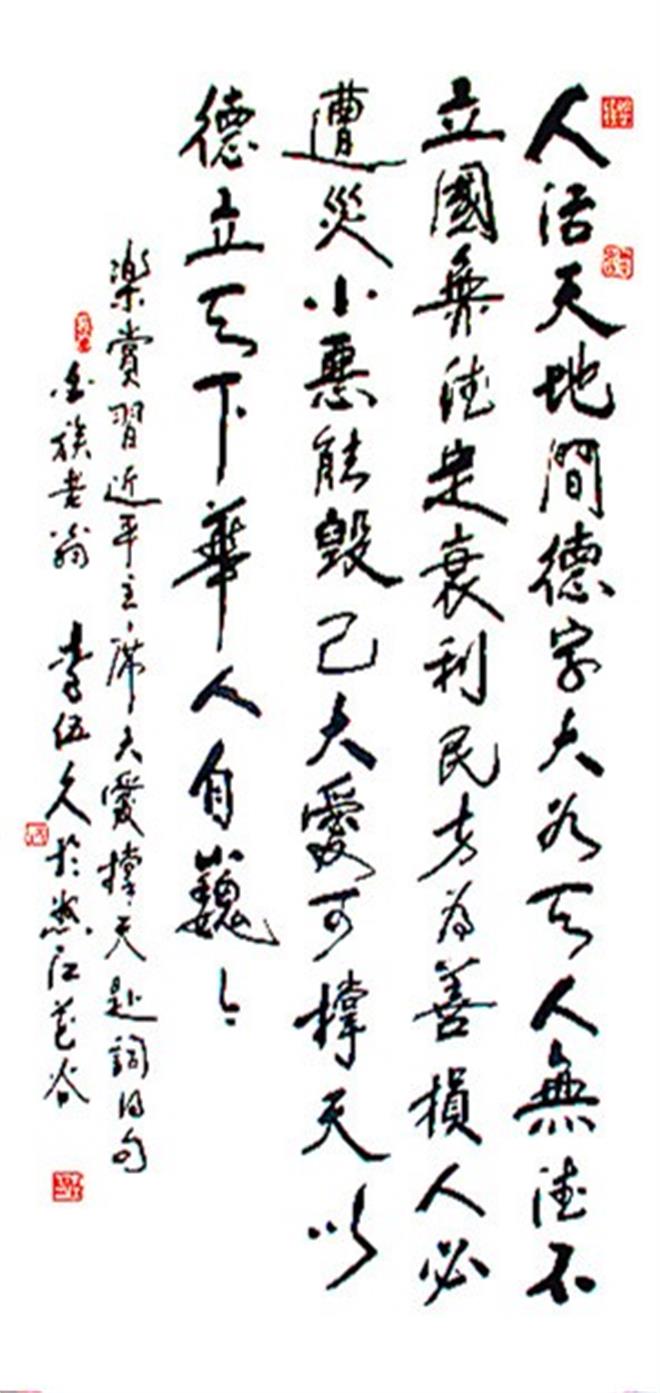 人活天地間德字大天人無德不
立國無德定衰利民方為善損人必
遭災小惡能毀己大愛可撐天以
德立天下華人自巍〻
樂賞習近平主席大愛撐天題詞得句
白族老翁 李伍久於怒江花谷